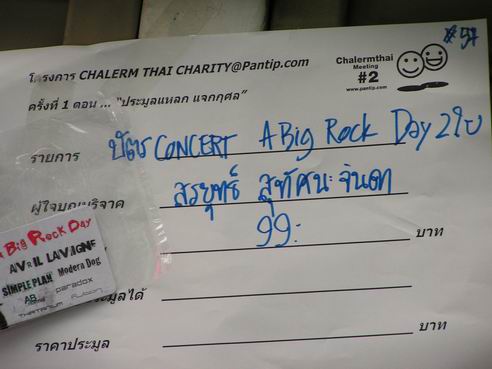 #57
โครงการ CHALERM THAI CHARITY@Pantip.com
Chalermthai
Meeting
#2
www.pantip.com
ครั้งที่ 1 ตอน ... “ประมูลแหลก แจกกุศล”
รายการ บัตร CONCERT A Big Rock Day 2ใบ
ผู้ใจบุญบริจาค สรยุทธ์ สุทัศนะจินดา
99.- บาท
Big Rock Day
AVRIL LAVIGNE
SIMPLE PLAN Modern Dog
AB paradox
ระมูลได้
ราคาประมูล บาท